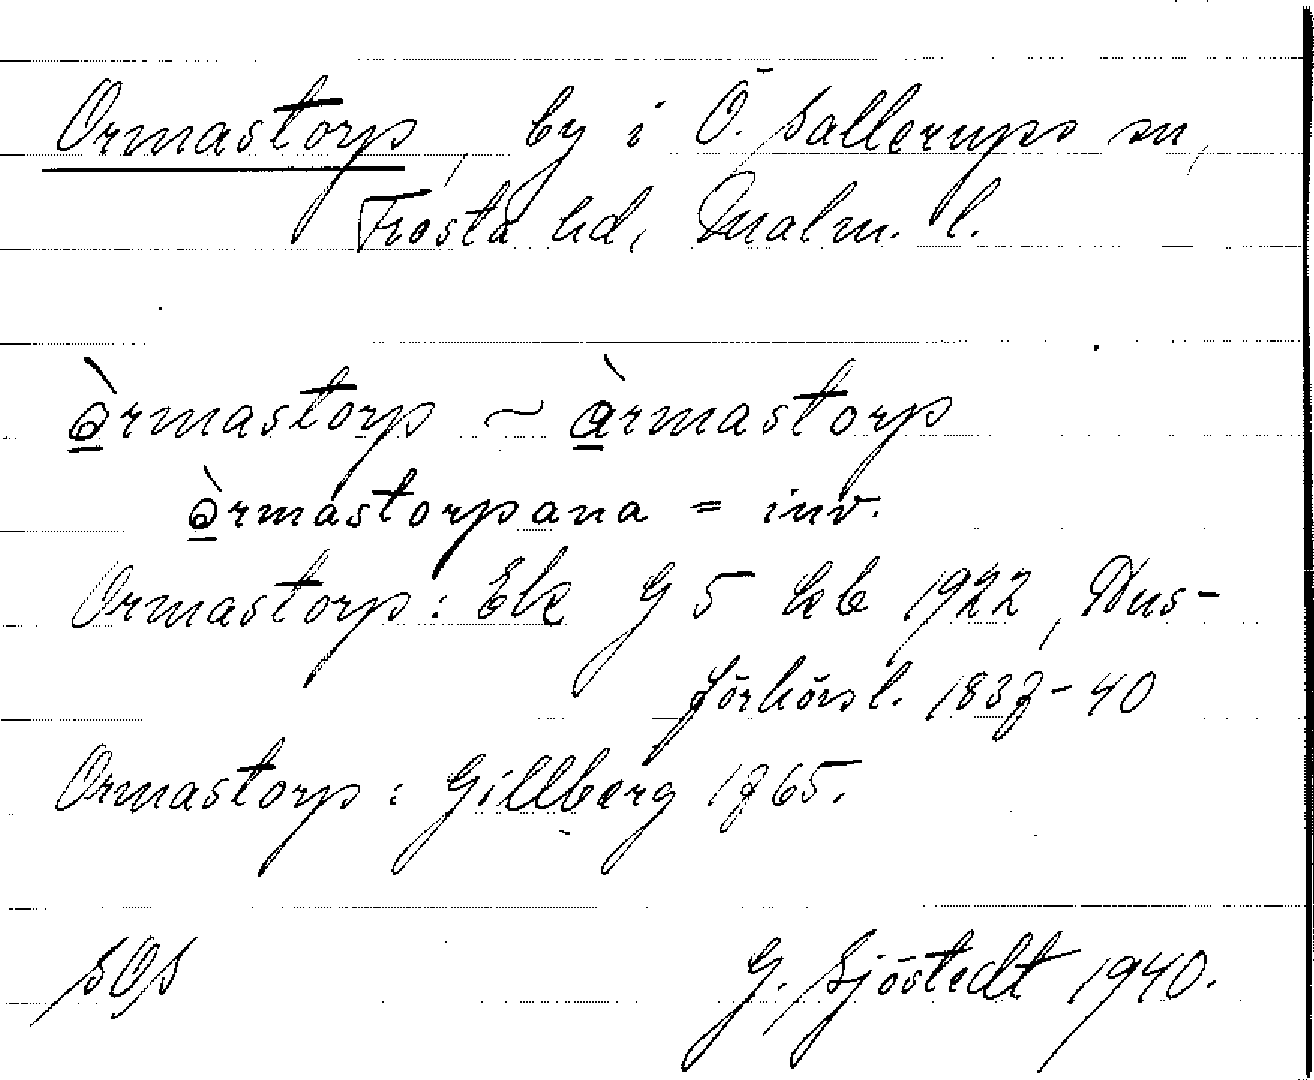 Ormastorp, by i Ö. Sallerups sn,
Frosta hd, Malm. l.
òrmastorp ~ àrmastorp
òrmastorpana = inv.
Ormastorp: Ek G 5 kb 1922, Hus-
förhörsl. 1837-40
Ormastorp: Gillberg 1765.
SOS
G. Sjöstedt 1940.